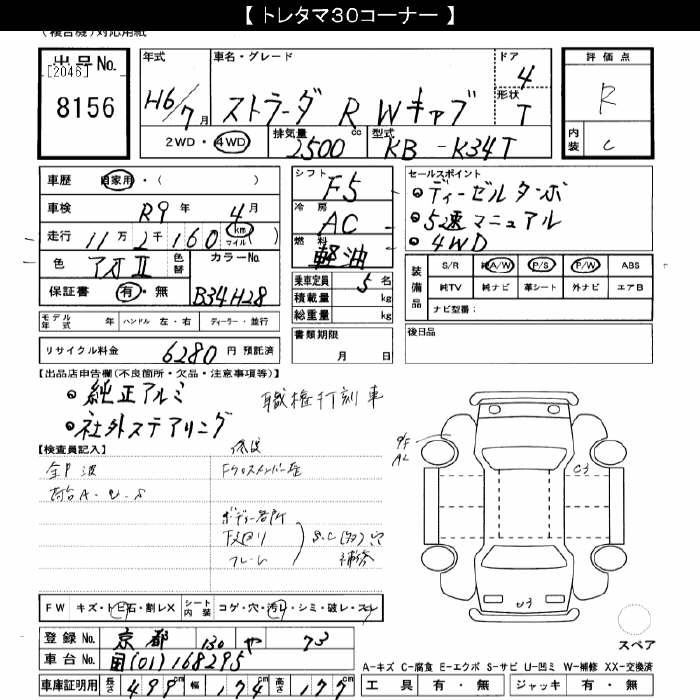 【 トレタマ30コーナー 】
(複合機)対応用紙
出品No.
[2046]
8156
年式
H6/7月
車名・グレード
ストラーダ R Wキャブ
ドア
4
形状
T
2WD・4WD
排気量
2500cc
型式
KB-K34T
評価点
R
内装
C
車歴 自家用・( )
車検 R9年 4月
走行 11万2千160 km マイル
色 アオII
色替
カラーNo.
B34H28
保証書 有・無
モデル年式 年 ハンドル 左・右 ディーラー・並行
リサイクル料金 6280円 預託済
シフト
F5
冷房
AC
燃料
軽油
乗車定員 5名
積載量 kg
総重量 kg
書類期限
月 日
セールスポイント
●ディーゼルターボ
●5速マニュアル
●4WD
装備品
S/R 純A/W P/S P/W ABS
純TV 純ナビ 革シート 外ナビ エアB
ナビ型番:
後日品
【出品店申告欄(不良箇所・欠品・注意事項等)】
●純正アルミ
職権打刻車
●社外ステアリング
【検査員記入】
修復
Fクロスメンバー歪
荷台A・U・S
ボディー各所
下回り
フレーム
S.C(多)穴
補修
P/F
AL
C3
U3
スペア
FW キズ・トビ石・割レX
シート内装 コゲ・穴・汚レ・シミ・破レ・スレ
登録No. 京都 130 や 73
車台No. 国(01)168295
車庫証明用 長さ 499cm 幅 174cm 高さ 177cm
A-キズ C-腐食 E-エクボ S-サビ U-凹ミ W-補修 XX-交換済
工具 有・無 ジャッキ 有・無